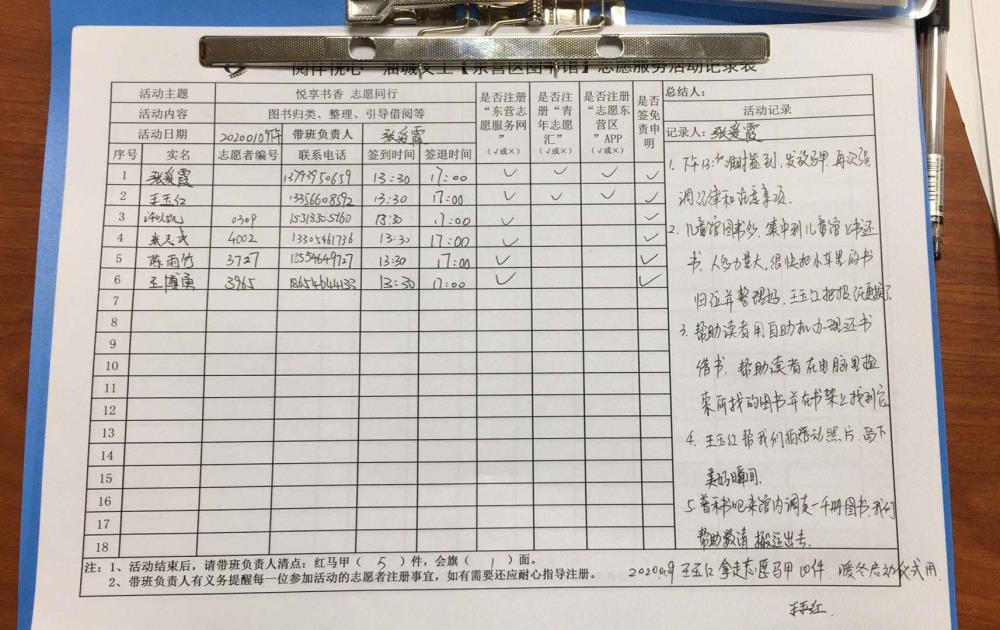 阅伴悦心 油城义工【东营区图书馆】志愿服务活动记录表
活动主题 悦享书香 志愿同行
活动内容 图书归类、整理、引导借阅等
活动日期 20200109下午 带班负责人 张爱霞
是否注册“东营志愿服务网” (√或×)
是否注册“青年志愿汇” (√或×)
是否注册“志愿东营区”APP (√或×)
是否签免责申明
序号 实名 志愿者编号 联系电话 签到时间 签退时间
1 张爱霞 13793950659 13:30 17:00 √ √ √ √
2 王玉红 13356608592 13:30 17:00 √ √ √ √
3 0309 15313305160 13:30 17:00 √ √
4 张志武 4002 13305461736 13:30 17:00 √ √
5 陈雨竹 3727 13554649727 13:30 17:00 √ √
6 王博勇 3965 18654644433 13:30 17:00 √ √
7
8
9
10
11
12
13
14
15
16
17
18
总结人：
活动记录
记录人：张爱霞
1. 下午13:30准时签到，发放马甲，再次强
调纪律和注意事项.
2. 儿童馆图书多，集中到儿童馆上书还
书，人多力量大，很快把小车里的书
归位并整理好，王玉红把报纸更换了
3. 帮助读者用自助机办理还书
借书，帮助读者在电脑里检
索所找的图书并在书架上找到它
4. 王玉红帮我们拍活动照片，留下
美好瞬间.
5. 书吧来馆内调走一千册图书，我们
帮助 搬运出去.
注：1、活动结束后，请带班负责人清点：红马甲（ 5 ）件，会旗（ 1 ）面。
2、带班负责人有义务提醒每一位参加活动的志愿者注册事宜，如有需要还应耐心指导注册。
王玉红拿走志愿马甲四件，暖冬启动仪式用.
王玉红